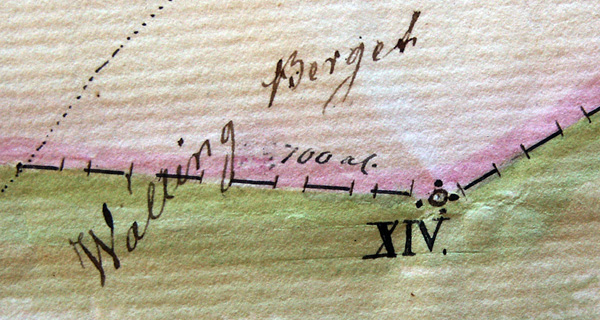 Berget
Walting
100 al.
XIV.